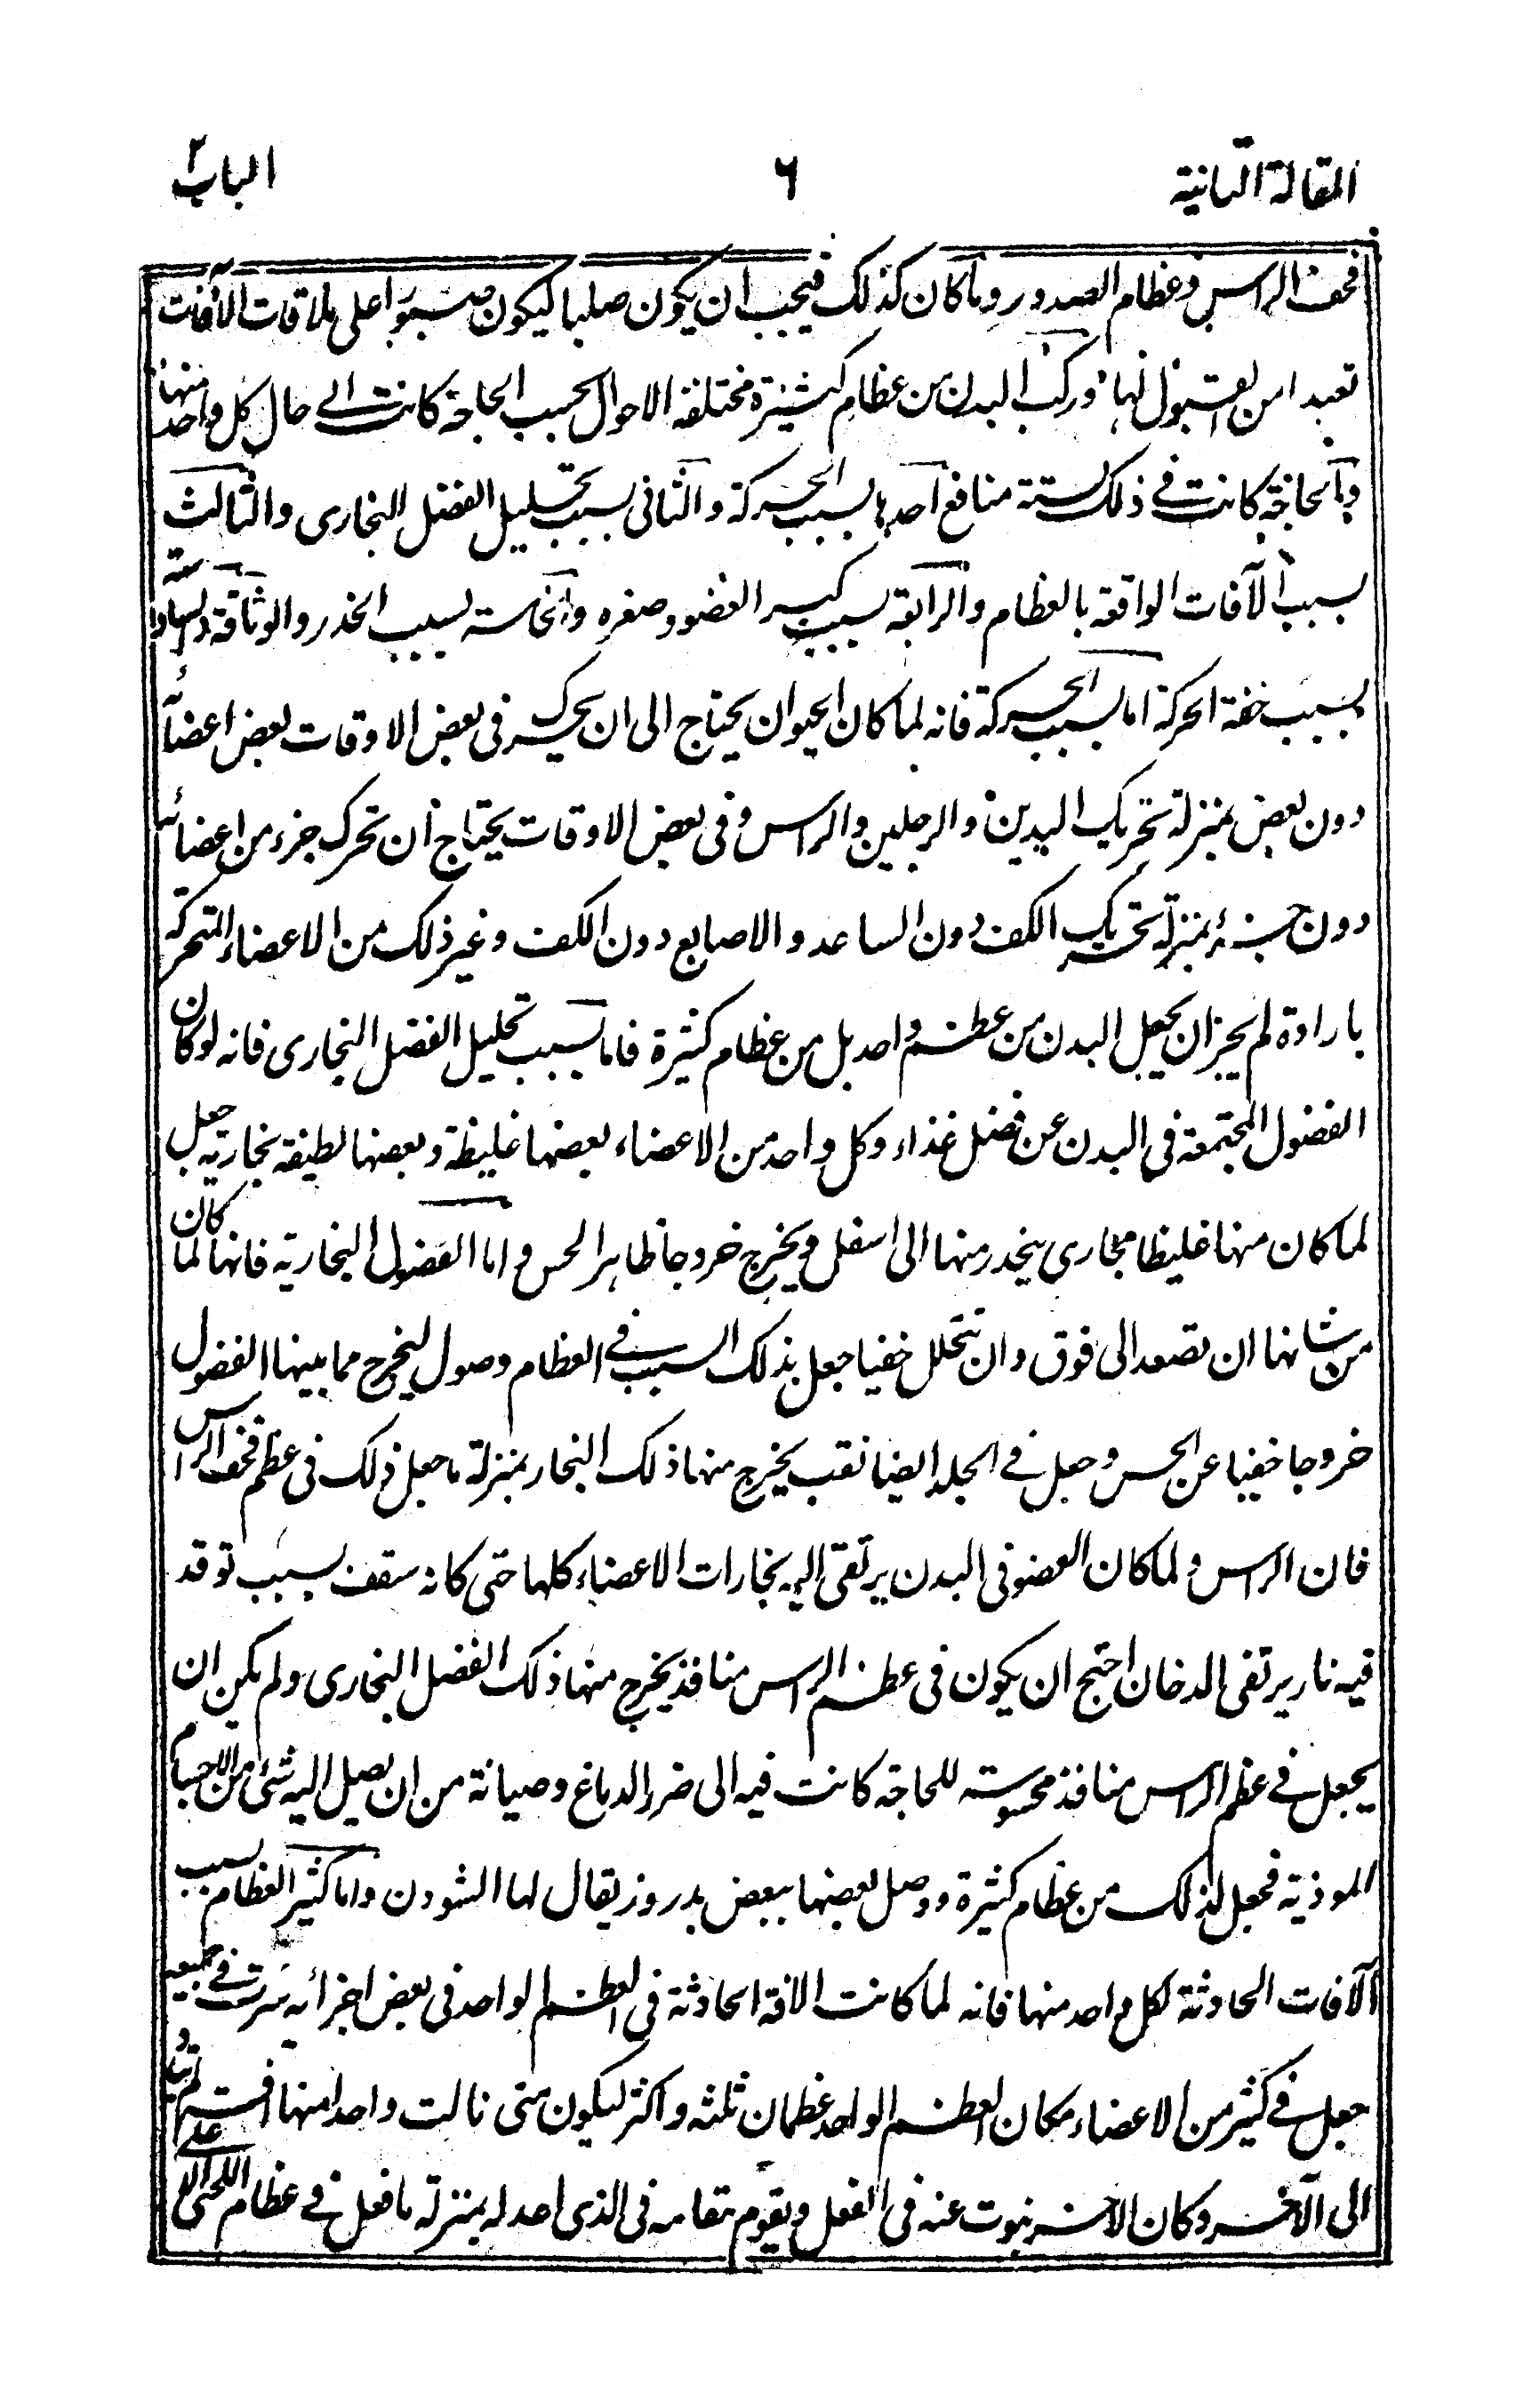 المقالة الثانية
٦
الباب ٢
قحف الراس وعظام الصدور وما كان كذلك فيجب ان يكون صلبا ليكون صبورا على ملاقات الآفات
بعيدا من القبول لها وركب البدن من عظام كثيرة مختلفة الاحوال بحسب الحاجة كانت الى حال كل واحد منها
والحاجة كانت فى ذلك لستة منافع احدها بسبب الحركة والثانى بسبب تحليل الفضل البخارى والثالث
بسبب الآفات الواقعة بالعظام والرابعة بسبب كبر العضو وصغره والخامسة بسبب الحذر والوثاقة والسادسة
بسبب خفة الحركة اما بسبب الحركة فانه لما كان الحيوان يحتاج الى ان يحرك فى بعض الاوقات بعض اعضائه
دون بعض بمنزلة تحريك اليدين والرجلين والراس وفى بعض الاوقات يحتاج ان تحرك جزء من اعضائه
دون جزء بمنزلة تحريك الكف دون الساعد والاصابع دون الكف وغير ذلك من الاعضاء المتحركة
بارادة لم يجز ان يجعل البدن من عظم واحد بل من عظام كثيرة فاما بسبب تحليل الفضل البخارى فانه لو كان
الفضول المجتمعة فى البدن عن فضل غذاء وكل واحد من الاعضاء بعضها غليظة وبعضها لطيفة بخارية جعل
لما كان منها غليظا مجارى ينحدر منها الى اسفل ويخرج خروجا ظاهر الحس واما الفضول البخارية فانها لما كان
من شانها ان تصعد الى فوق وان تتحلل خفيا جعل بذلك السبب فى العظام وصول ليخرج مما بينها الفضول
خروجا خفيا عن الحس وجعل فى الجلد ايضا ثقب يخرج منها ذلك البخار بمنزلة ما جعل ذلك فى عظم قحف الراس
فان الراس ولما كان العضو فى البدن يرتقى اليه بخارات الاعضاء كلها حتى كانه سقف بسبب توقد
فيه نار يرتقى الدخان احتيج ان يكون فى عظم الراس منافذ يخرج منها ذلك الفضل البخارى ولم يكن ان
يجعل فى عظم الراس منافذ محسوسة للحاجة كانت فيه الى ضرر الدماغ وصيانة من ان يصل اليه شئ من الاجسام
الموذية فجعل لذلك من عظام كثيرة ووصل بعضها ببعض بدروز يقال لها الشوون واما كثير العظام بسبب
الآفات الحادثة لكل واحد منها فانه لما كانت الافة الحادثة فى العظم الواحد فى بعض اجزائه سرت فى جميعه
جعل فى كثير من الاعضاء مكان العظم الواحد عظمان ثلثه واكثر ليكون متى نالت واحدا منها افة لم
الى الآخر وكان الآخر ينوب عنه فى الفعل ويقوم مقامه فى الذى احد له بمنزلة ما فعل فى عظام اللحى